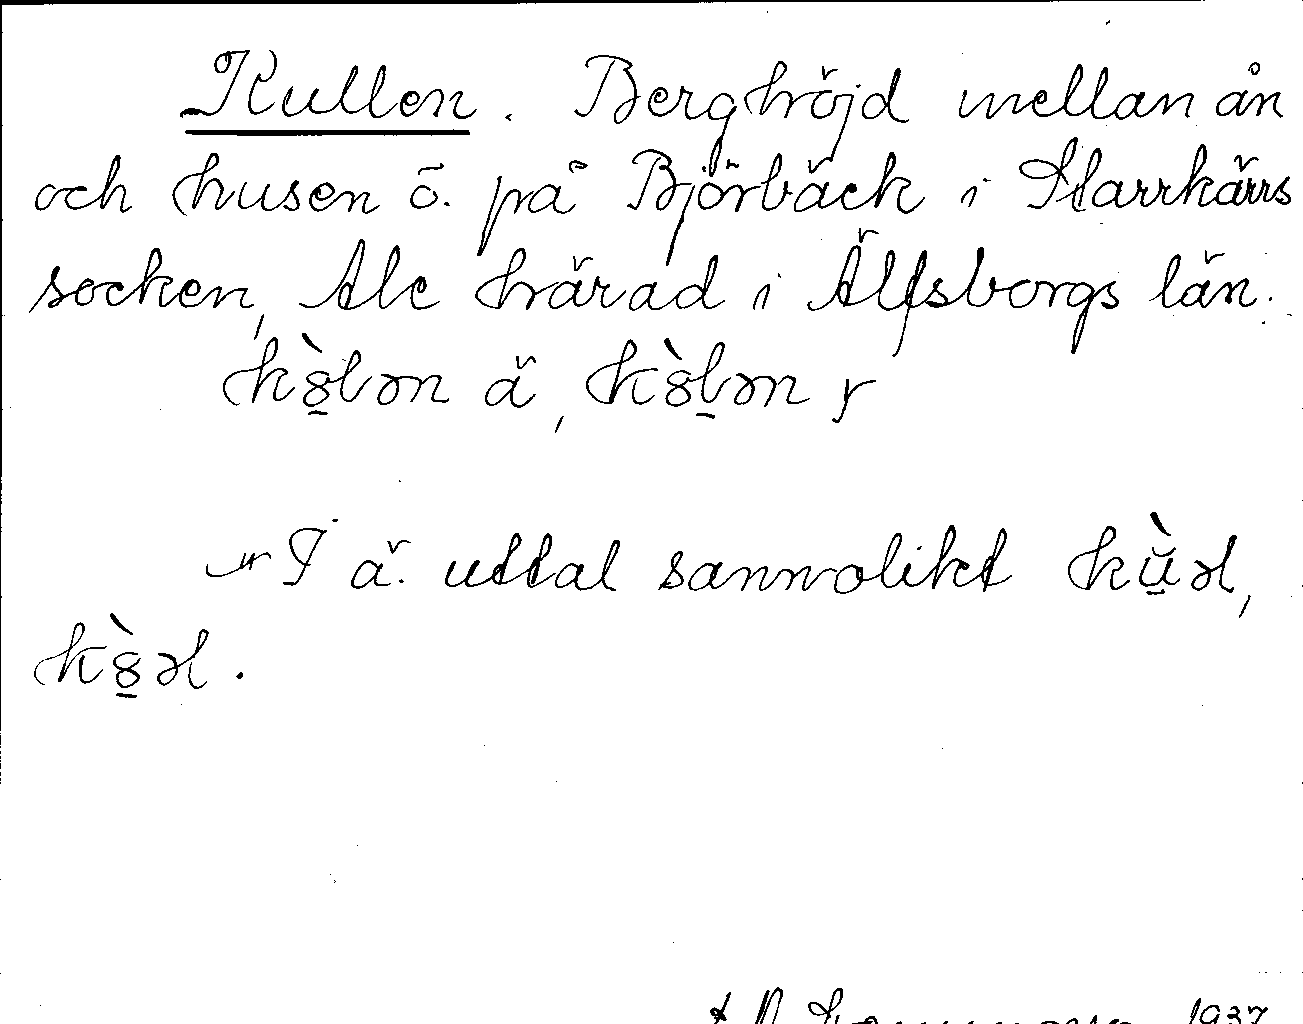 Kullen. Berghöjd mellan ån
och husen ö. på Björbäck i Starrkärrs
socken, Ale härad i Älfsborgs län.
kȍ̱lən ä, kȍḻən y
I ä. uttal sannolikt kù̱əl,
kȍ̱əl.
1937